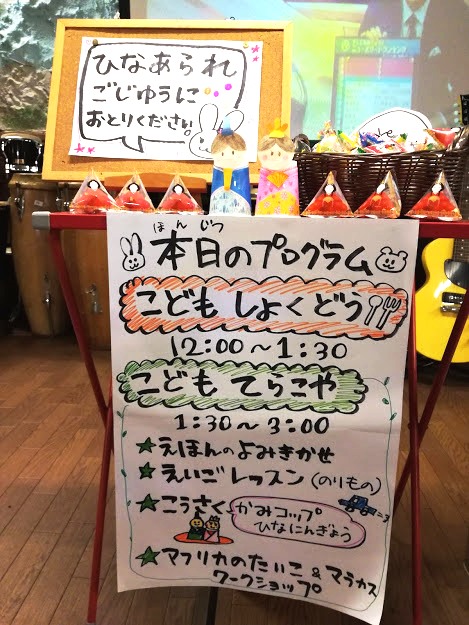 ひなあられ
ごじゆうに
おとりください。
ほんじつ
本日のプログラム
こども しょくどう
12:00～1:30
こども てらこや
1:30～3:00
★えほんのよみきかせ
★えいごレッスン(のりもの)
★こうさく
かみコップ
ひなにんぎょう
★アフリカのたいこ&マラカス
ワークショップ